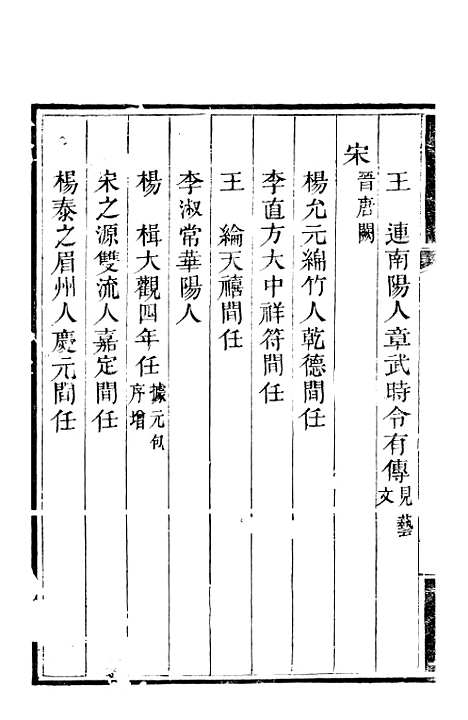 王　連南陽人章武時令有傳見藝文
宋晉唐闕
楊允元綿竹人乾德間任
李直方大中祥符間任
王　綸天禧間任
李淑常華陽人
楊　楫大觀四年任據元包序增
宋之源雙流人嘉定間任
楊泰之眉州人慶元間任